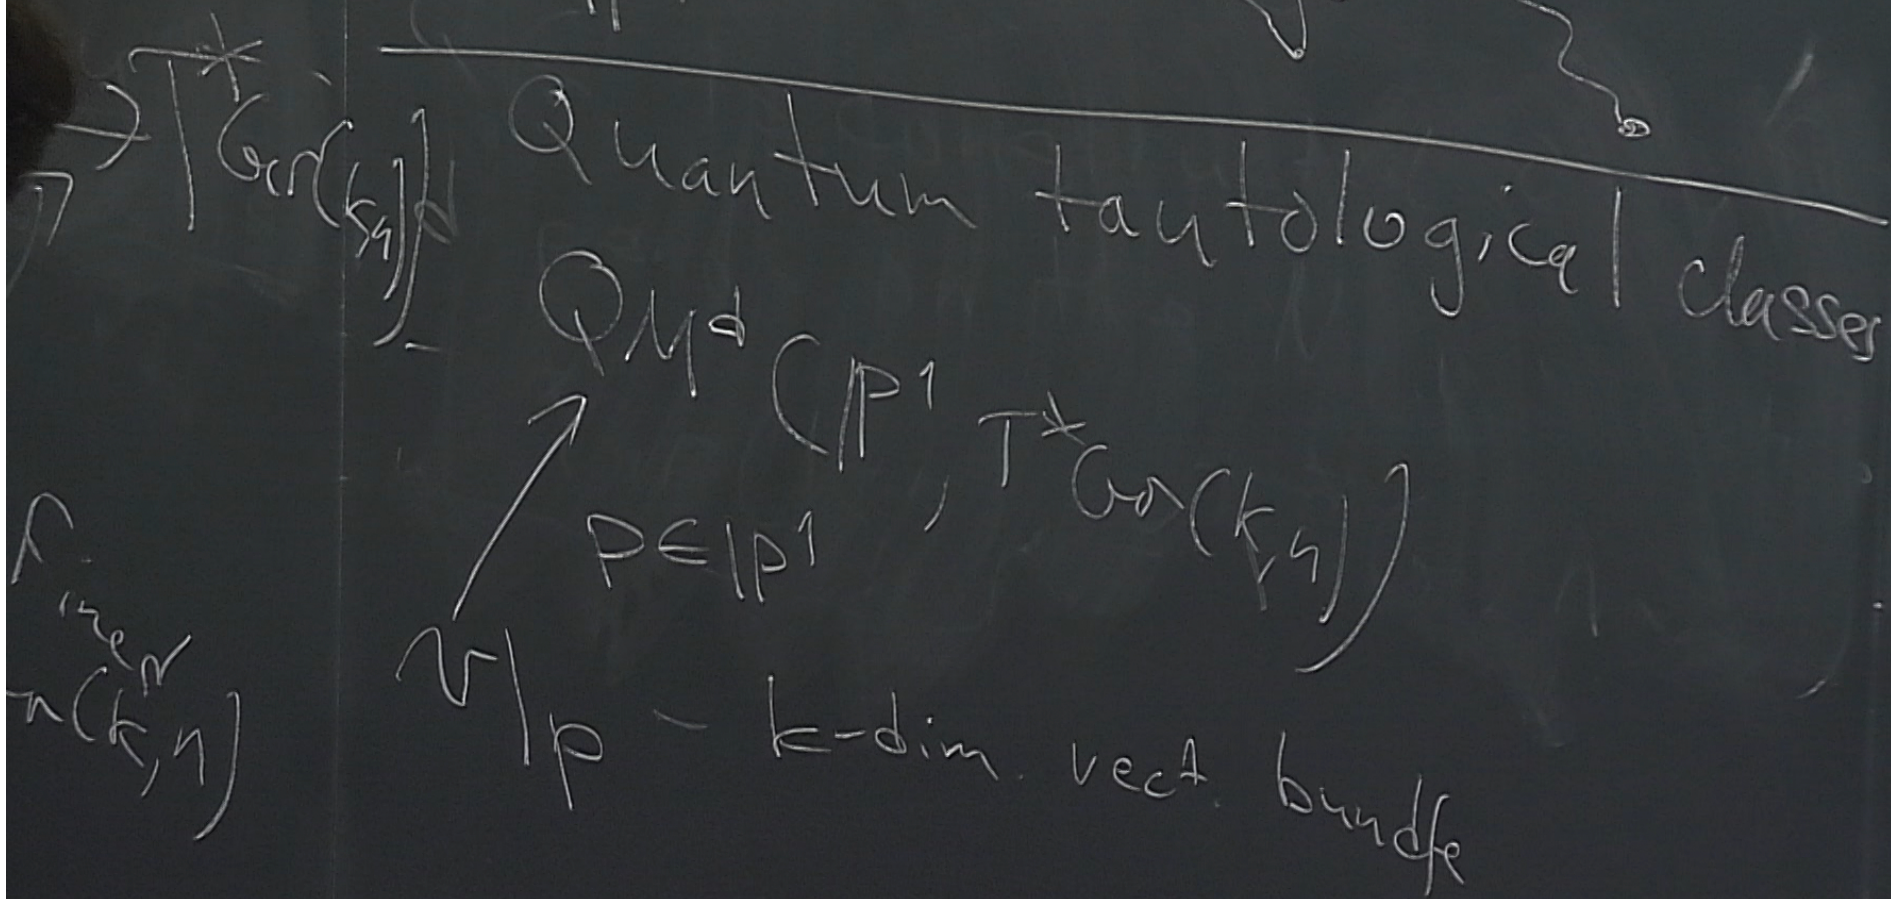 → T*Gr(k,n)
Quantum tautological classes
QM^d (P^1, T*Gr(k,n))
p ∈ P^1
𝒱|_p – k-dim. vect. bundle
(k,n)